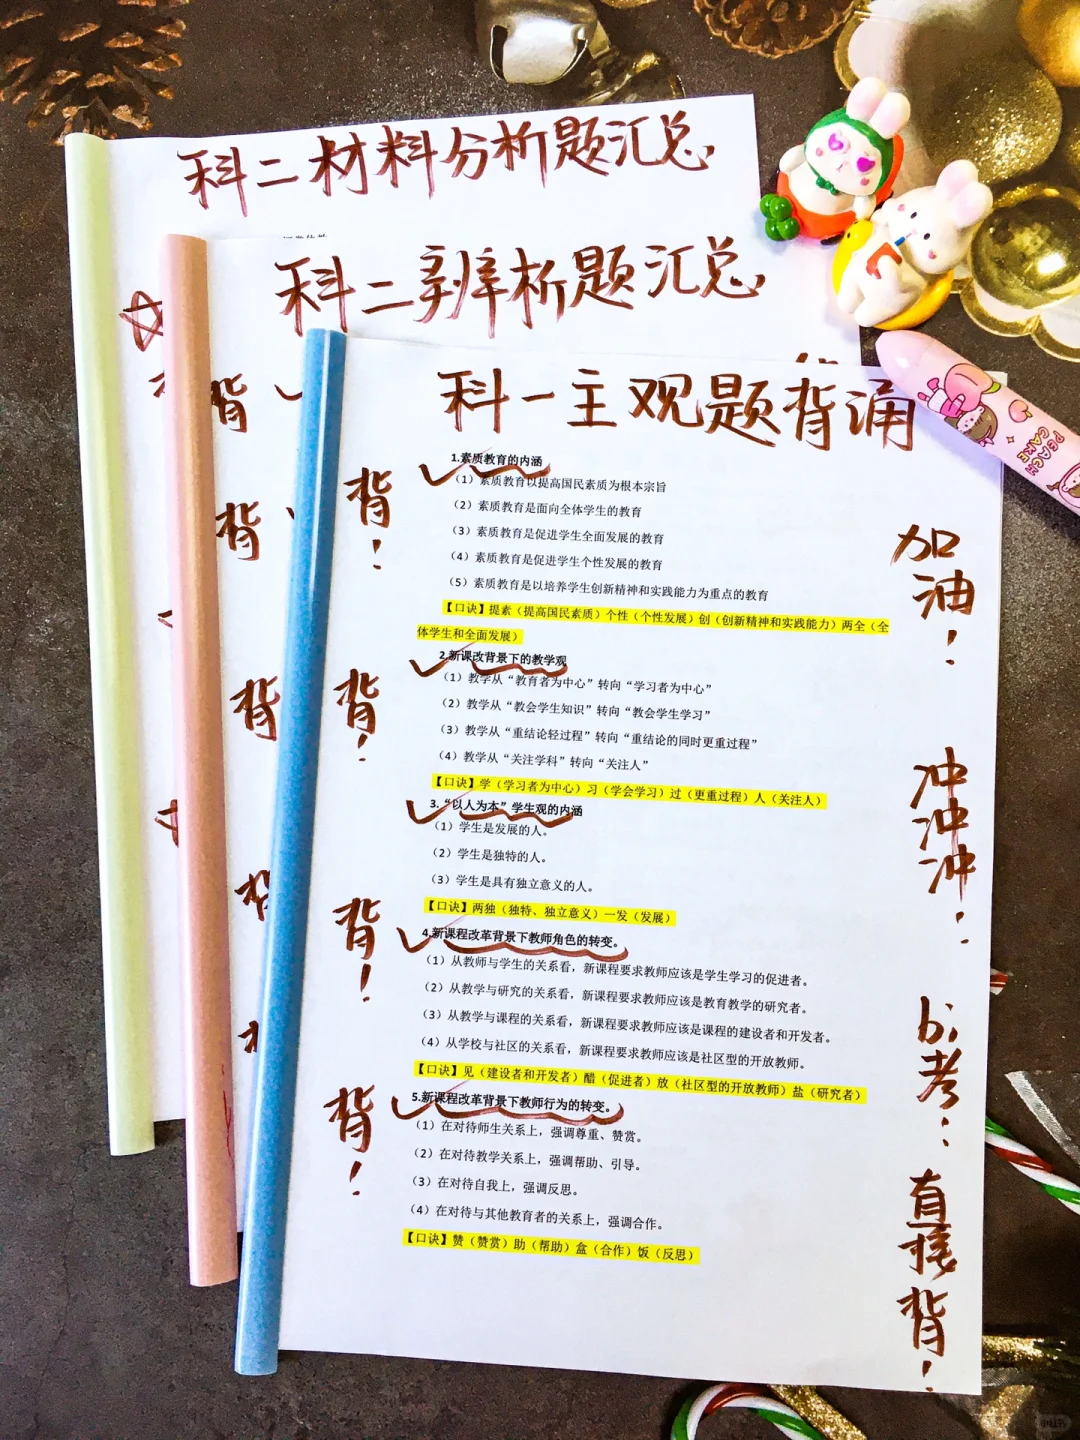 科二材料分析题汇总
科二辨析题汇总
科一主观题背诵
1.素质教育的内涵
(1)素质教育以提高国民素质为根本宗旨
(2)素质教育是面向全体学生的教育
(3)素质教育是促进学生全面发展的教育
(4)素质教育是促进学生个性发展的教育
(5)素质教育是以培养学生创新精神和实践能力为重点的教育
【口诀】提素(提高国民素质)个性(个性发展)创(创新精神和实践能力)两全(全
体学生和全面发展)
2.新课改背景下的教学观
(1)教学从“教育者为中心”转向“学习者为中心”
(2)教学从“教会学生知识”转向“教会学生学习”
(3)教学从“重结论轻过程”转向“重结论的同时更重过程”
(4)教学从“关注学科”转向“关注人”
【口诀】学(学习者为中心)习(学会学习)过(更重过程)人(关注人)
3.“以人为本”学生观的内涵
(1)学生是发展的人。
(2)学生是独特的人。
(3)学生是具有独立意义的人。
【口诀】两独(独特、独立意义)一发(发展)
4.新课程改革背景下教师角色的转变。
(1)从教师与学生的关系看，新课程要求教师应该是学生学习的促进者。
(2)从教学与研究的关系看，新课程要求教师应该是教育教学的研究者。
(3)从教学与课程的关系看，新课程要求教师应该是课程的建设者和开发者。
(4)从学校与社区的关系看，新课程要求教师应该是社区型的开放教师。
【口诀】见(建设者和开发者)醋(促进者)放(社区型的开放教师)盐(研究者)
5.新课程改革背景下教师行为的转变。
(1)在对待师生关系上，强调尊重、赞赏。
(2)在对待教学关系上，强调帮助、引导。
(3)在对待自我上，强调反思。
(4)在对待与其他教育者的关系上，强调合作。
【口诀】赞(赞赏)助(帮助)盒(合作)饭(反思)
背!
背!
背!
背!
背
背
背
加油!
冲冲冲!
bi考!
直接背!
PEACH
CAKE
小红书